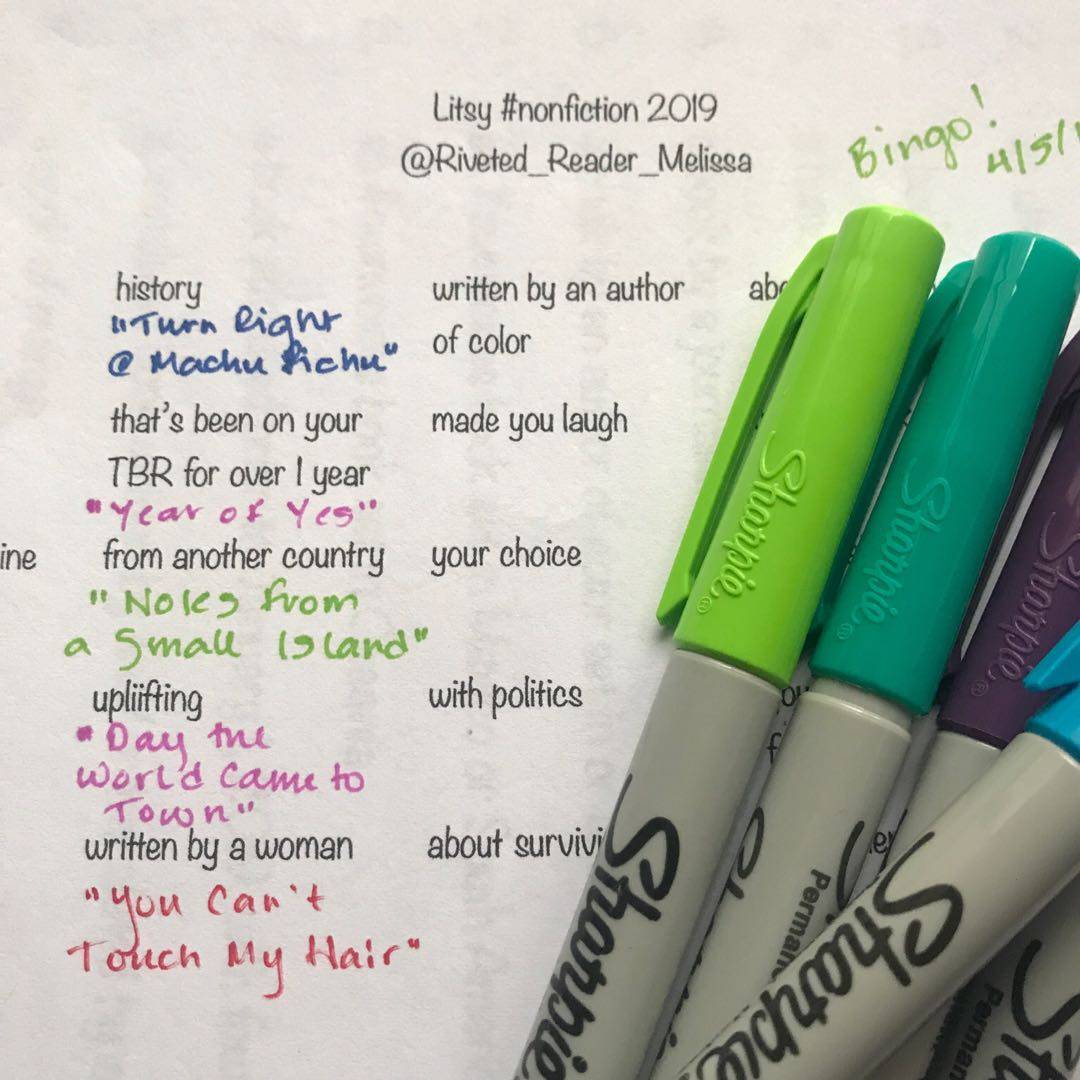 Litsy #nonfiction 2019
@Riveted_Reader_Melissa
Bingo!
4/5/1
history
"Turn Right
@ Machu Pichu"
written by an author
of color
that's been on your
TBR for over 1 year
"Year of Yes"
made you laugh
ine
from another country
"Notes from
a Small Island"
your choice
upliifting
"Day the
World Came to
Town"
with politics
written by a woman
"You Can't
Touch My Hair"
about survivi
Sharpie®
Sharpie®
Sharpie®
Sharpie
Sharpie
Permanent